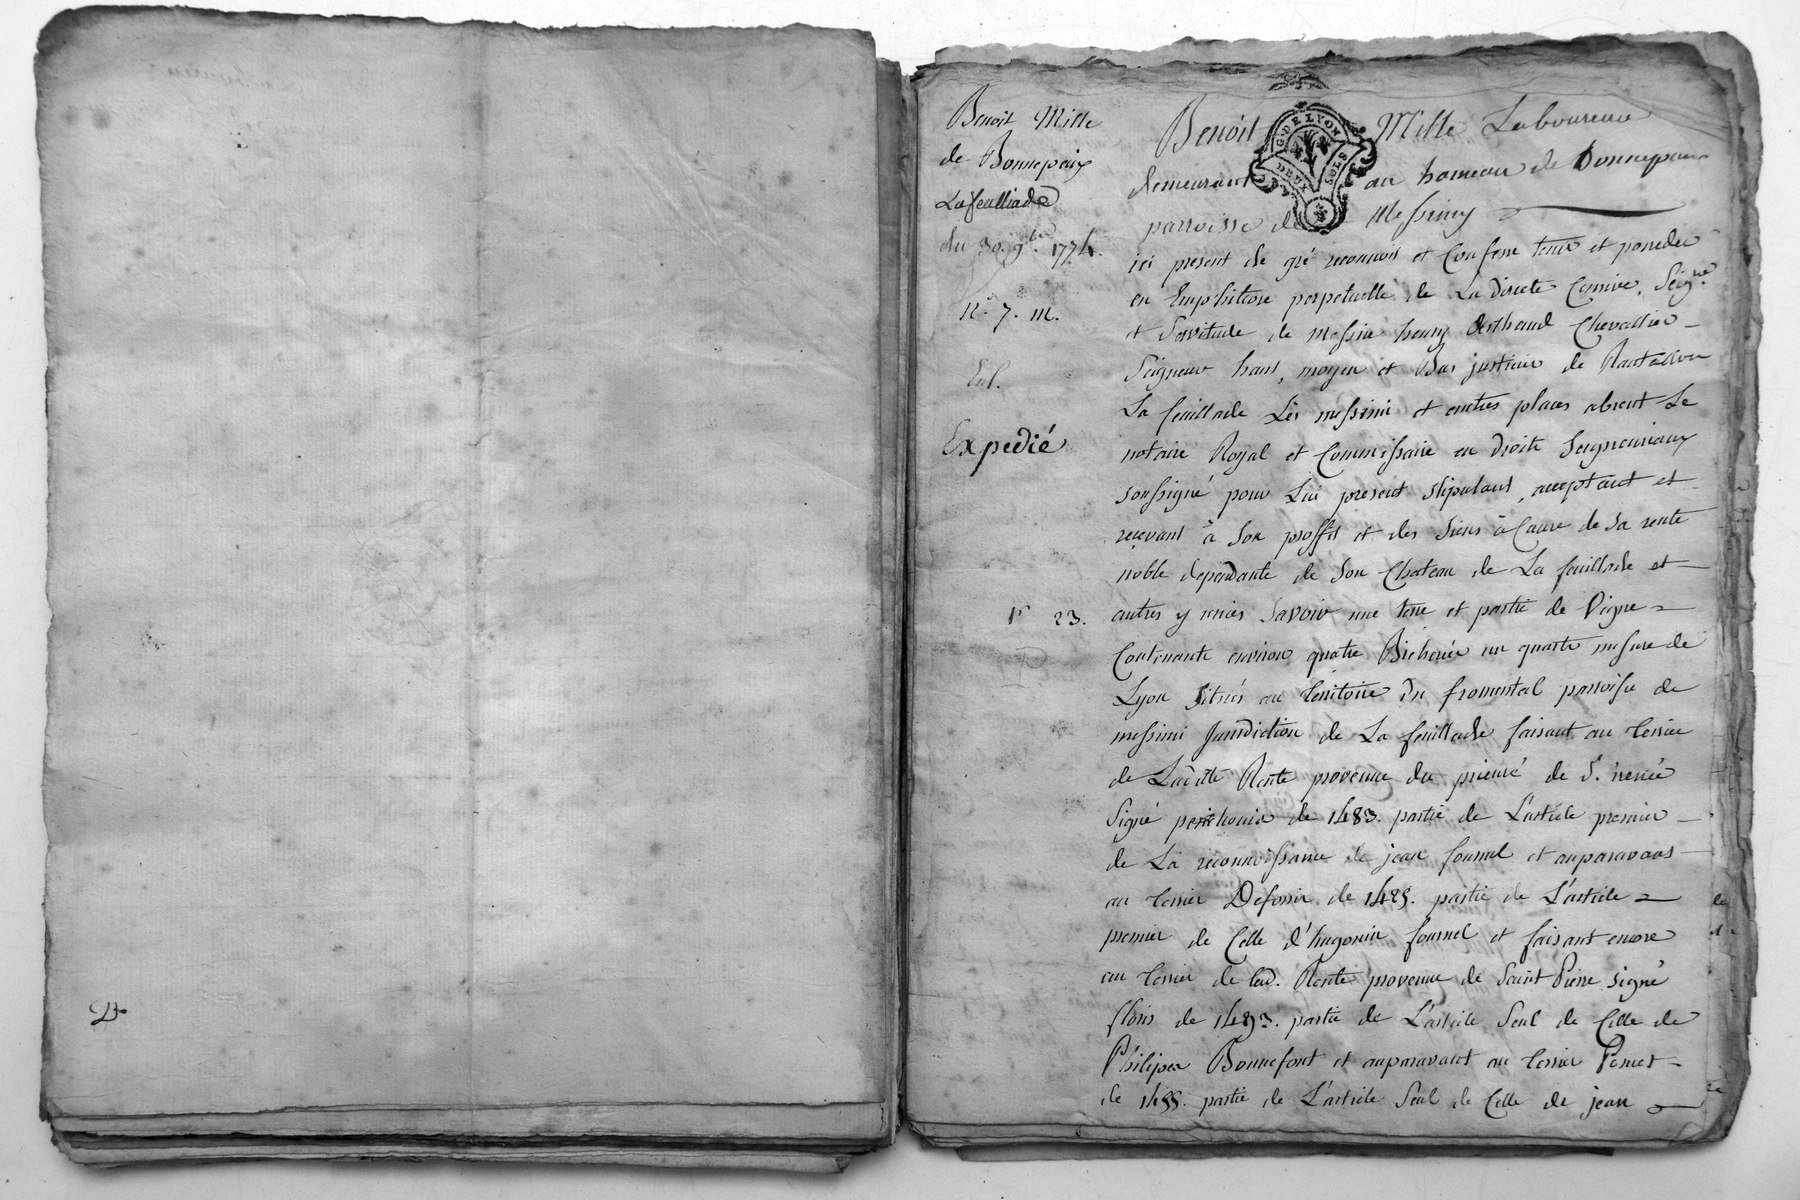 Benoit Mille
de Bonnepaix
Lafeulliade
du 30. 9bre. 1774.
n°. 7. m.
Expedié
1r 23.
Benoit Mille Laboureur
G. DE LYON
DEUX SOLS
demeurant au hameau de Bonnepaix
parroisse de Messimy
ici present de gré reconnois et Confesse tenir et posseder
en Emphiteose perpetuelle de La directe Censive, Seigrie
et Servitude de messire henry Arthaud Chevallier
Seigneur haut, moyen et Bas justicier de
La feuillade Les messimi et autres places absent Le
notaire Royal et Commissaire en droits Seigneuriaux
soussigné pour Lui present stipulant, acceptant et
reçevant à Son proffit et des Siens à Cause de Sa rente
noble dependante de Son Chateau de La feuillade et
autres y unies Savoir une terre et partie de Vigne
Contenante environ quatre Bicherée un quart mesure de
Lyon Situés au territoire du fromental parroisse de
messimi Jurisdiction de La feuillade faisant au terrier
de Ladite Rente provenue du prieuré de St. irenée
Signé de 1483. partie de L'article premier
de La reconnoissance de jean fournel et auparavant
au terrier Defossir de 1485. partie de L'article
premier de Celle d'hugonin fournel et faisant encore
au terrier de lad. Rente provenue de Saint Pierre signé
floris de 1493. partie de L'article Seul de Celle de
Philipea Bonnefont et auparavant au terrier
de 1455. partie de L'article Seul de Celle de jean